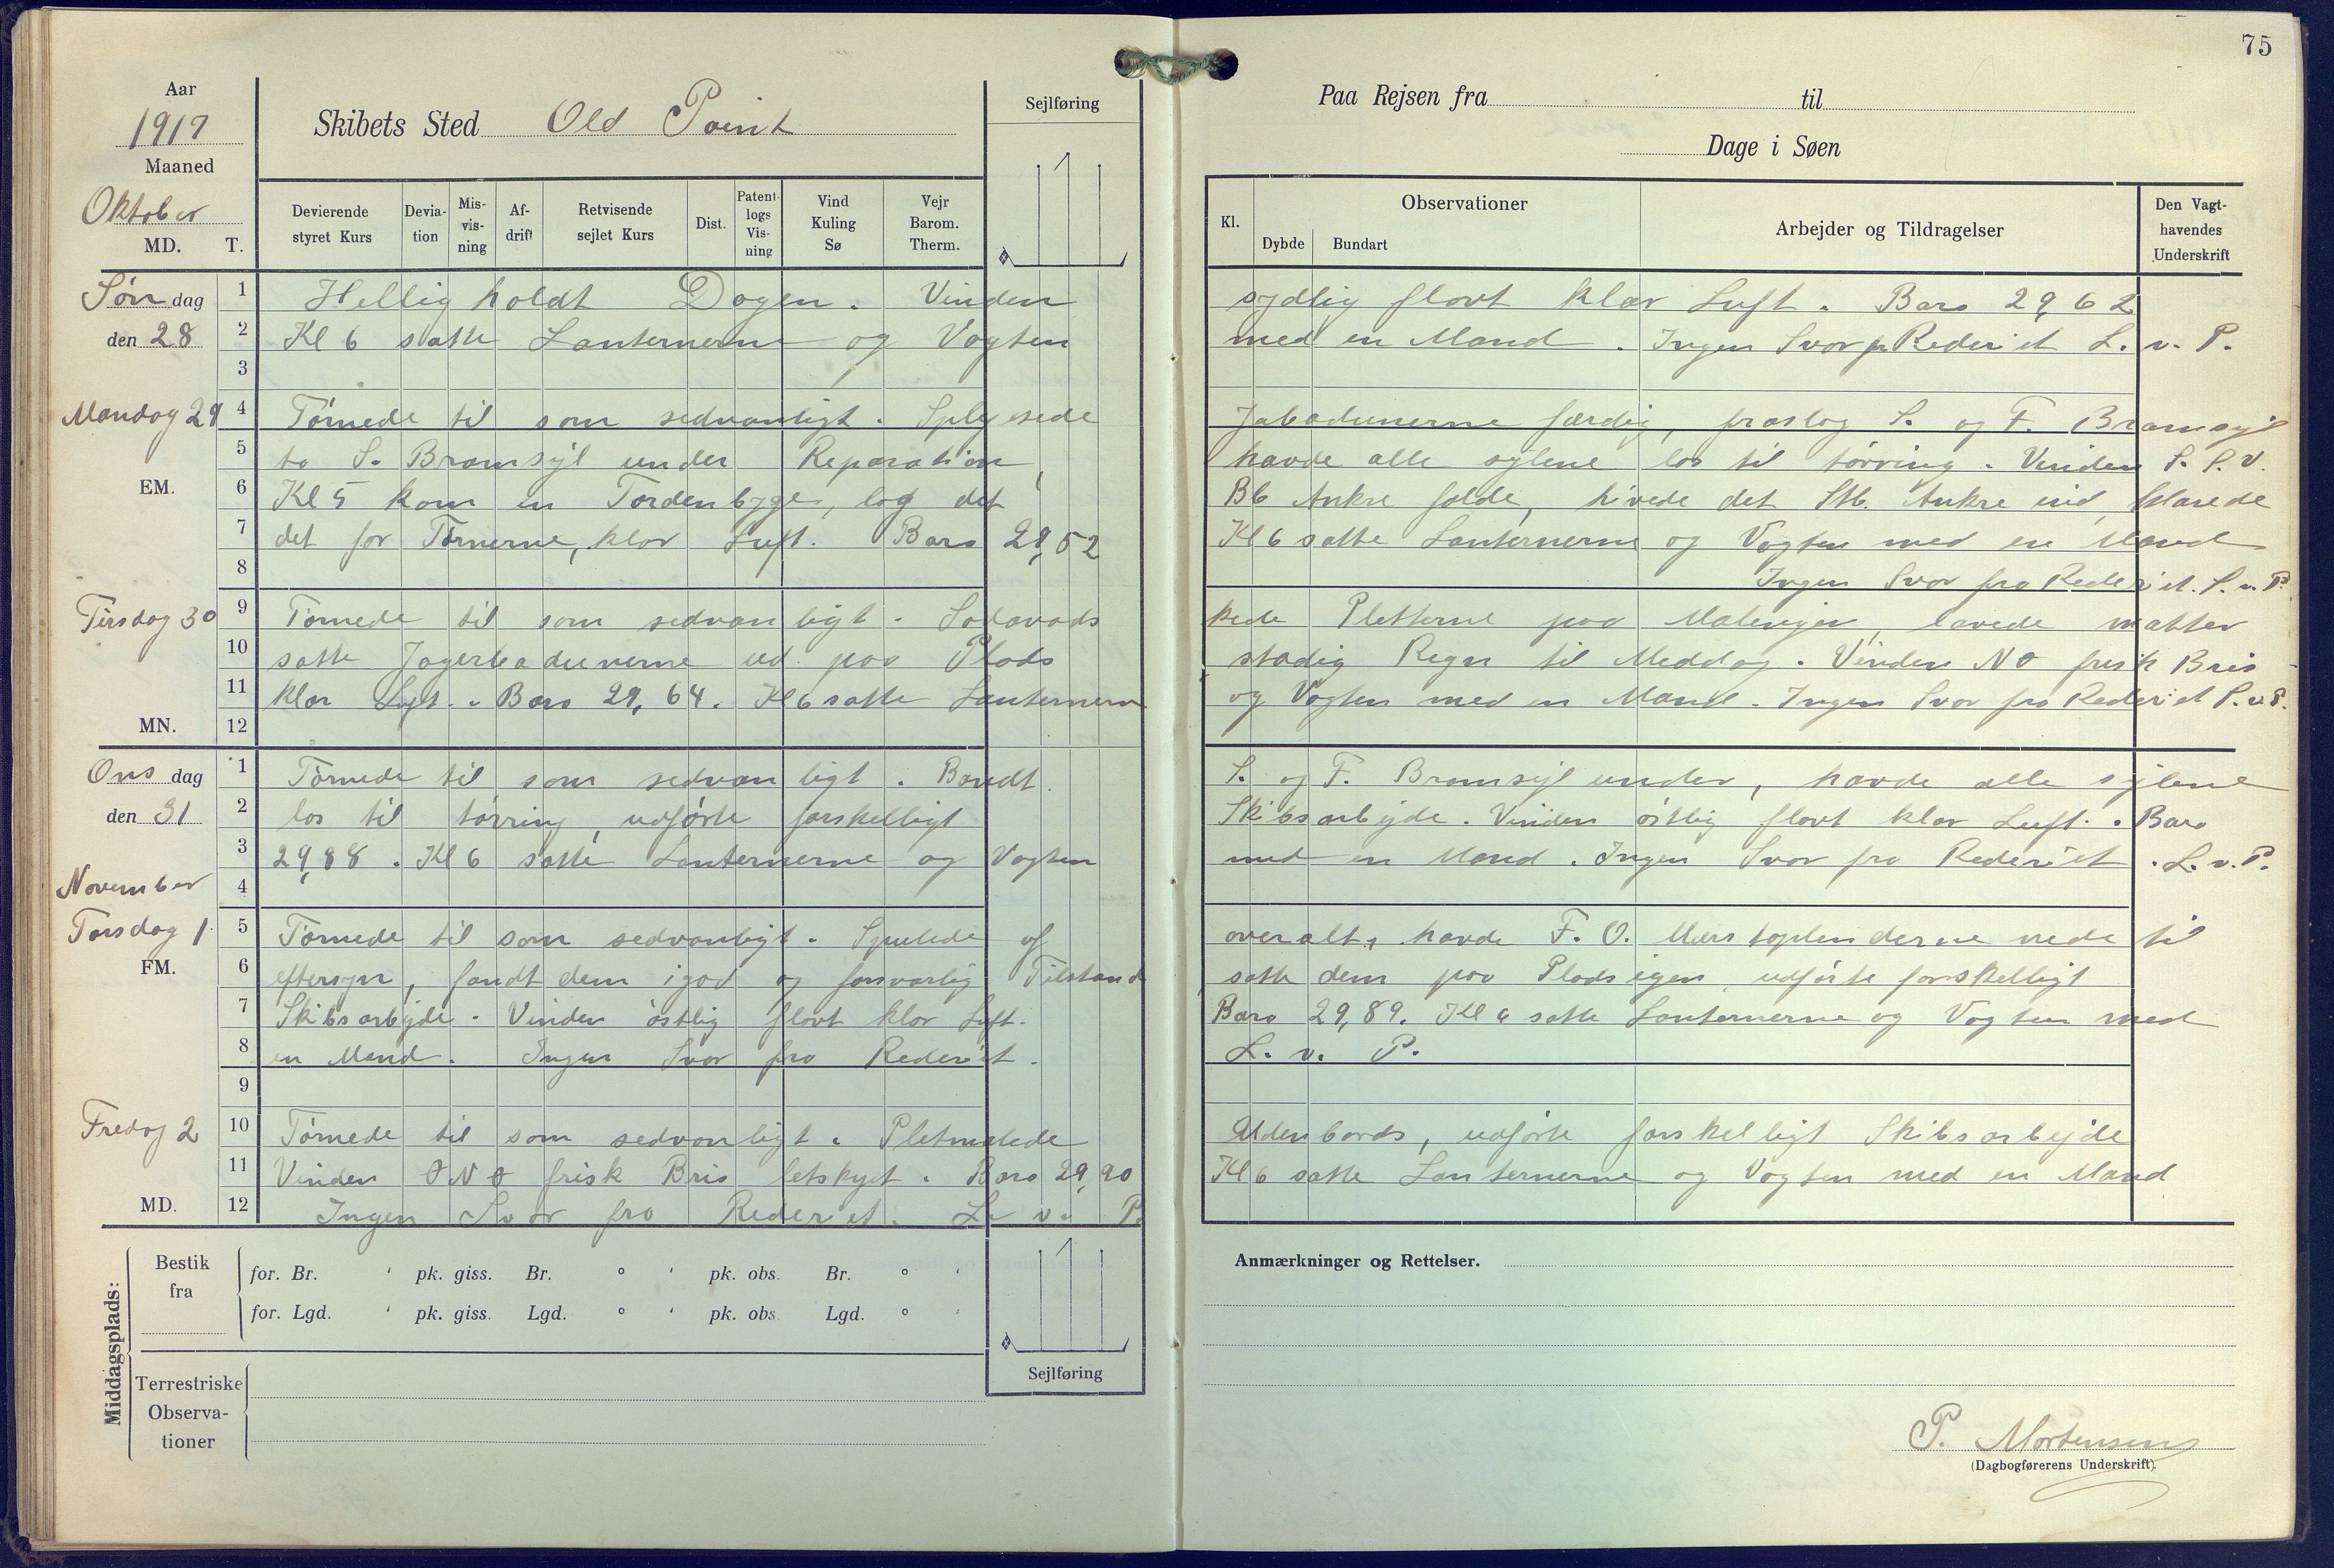 75
Aar
1917
Maaned
Oktober
MD. T.
Skibets Sted Old Point
Sejlføring
Paa Rejsen fra til
Dage i Søen
Devierende styret Kurs
Deviation
Misvisning
Afdrift
Retvisende sejlet Kurs
Dist.
Patent logs Visning
Vind Kuling Sø
Vejr Barom. Therm.
Kl.
Observationer
Dybde Bundart
Arbejder og Tildragelser
Den Vagthavendes Underskrift
Søn dag
den 28
1 Hellig holdt Dagen. Vinden sydlig flovt klar Luft. Baro 29,62
2 Kl 6 satte Lanternerne og Vagten med en Mand. Ingen Svar fra Rederiet L. v. P.
3
Mandag 29
4 Törnede til som sedvanligt. Splejsede Jabadunerne færdig, fraslog S. og F. Bramsejl
5 to S. Bramsejl under Reparation, havde alle sejlene los til törring. Vinden S. S. V.
EM.
6 Kl 5 kom en Tordenbyge, lod det Bb Ankre falde, hivede det Stb. Ankre ind, klarede
7 det for Törnerne, klar Luft. Baro 29,52 Kl 6 satte Lanternerne og Vagten med en Mand
8 Ingen Svar fra Rederiet. L. v. P.
Tirsdag 30
9 Törnede til som sedvanligt. Sodavadskede Pletterne paa Malingen, lavede matter
10 satte Jagerbadunerne ud paa Plads stadig Regn til Meddag. Vinden NO frisk Bris
11 klar Luft. Baro 29,64. Kl 6 satte Lanternerne og Vagten med en Mand. Ingen Svar fra Rederiet L. v. P.
MN. 12
Ons dag
den 31
1 Törnede til som sedvanligt. Bandt S. og F. Bramsejl under, havde alle sejlene
2 los til törring, udförte forskelligt Skibsarbejde. Vinden östlig flovt klar Luft. Baro
3 29,88. Kl 6 satte Lanternerne og Vagten med en Mand. Ingen Svar fra Rederiet. L. v. P.
November
4
Torsdag 1
5 Törnede til som sedvanligt. Spulede af overalt, havde F. O. Merstoplenderne nede til
FM.
6 eftersyn, fandt dem i god og forsvarlig Tilstand satte dem paa Plads igen, udförte forskelligt
7 Skibsarbejde. Vinden östlig flovt klar Luft. Baro 29,89. Kl 6 satte Lanternerne og Vagten med
8 en Mand. Ingen Svar fra Rederiet. L. v. P.
9
Fredag 2
10 Törnede til som sedvanligt. Pletmalede Udenbords, udförte forskelligt Skibsarbejde
11 Vinden ONO frisk Bris letskyet. Baro 29,90 Kl 6 satte Lanternerne og Vagten med en Mand
MD. 12 Ingen Svar fra Rederiet. L. v. P.
Middagsplads:
Bestik fra
for. Br. ' pk. giss. Br. ° ' pk. obs. Br. ° '
for. Lgd. ' pk. giss. Lgd. ° ' pk. obs. Lgd. ° '
Terrestriske Observationer
Sejlføring
Anmærkninger og Rettelser.
P. Mortensen
(Dagbogførerens Underskrift).